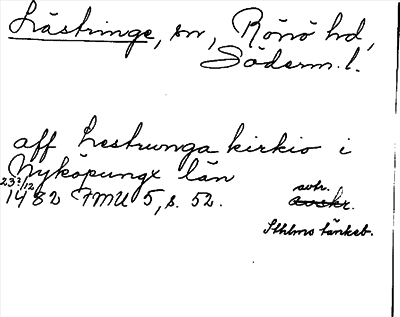 Lästringe, sn, Rönö hd,
Söderm. l.
aff Lestrunga kirkio i
Nyköpungx län
23?/12
1482 FMU 5, s. 52.
avtr.
avskr.
Sthlms tänkeb.